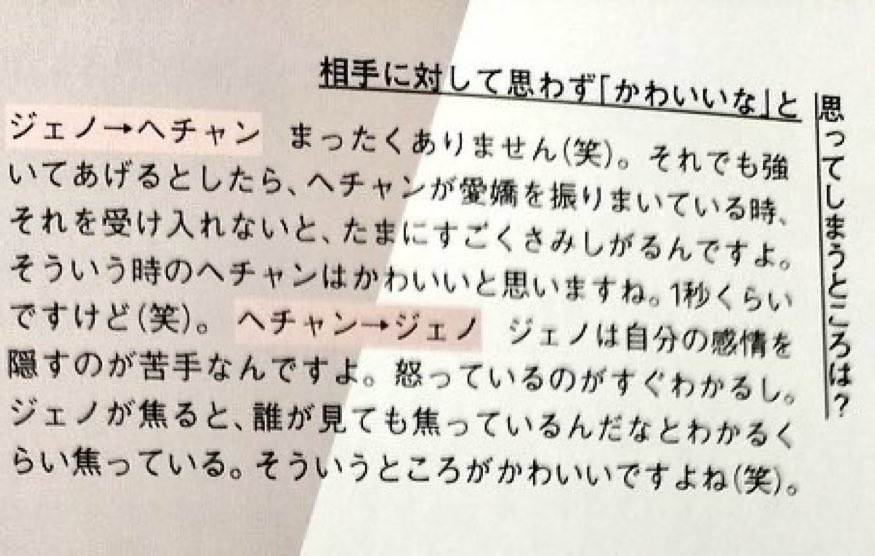 相手に対して思わず「かわいいな」と
思ってしまうところは?
ジェノ→ヘチャン まったくありません(笑)。それでも強
いてあげるとしたら、ヘチャンが愛嬌を振りまいている時、
それを受け入れないと、たまにすごくさみしがるんですよ。
そういう時のヘチャンはかわいいと思いますね。1秒くらい
ですけど(笑)。 ヘチャン→ジェノ ジェノは自分の感情を
隠すのが苦手なんですよ。怒っているのがすぐわかるし。
ジェノが焦ると、誰が見ても焦っているんだなとわかるく
らい焦っている。そういうところがかわいいですよね(笑)。